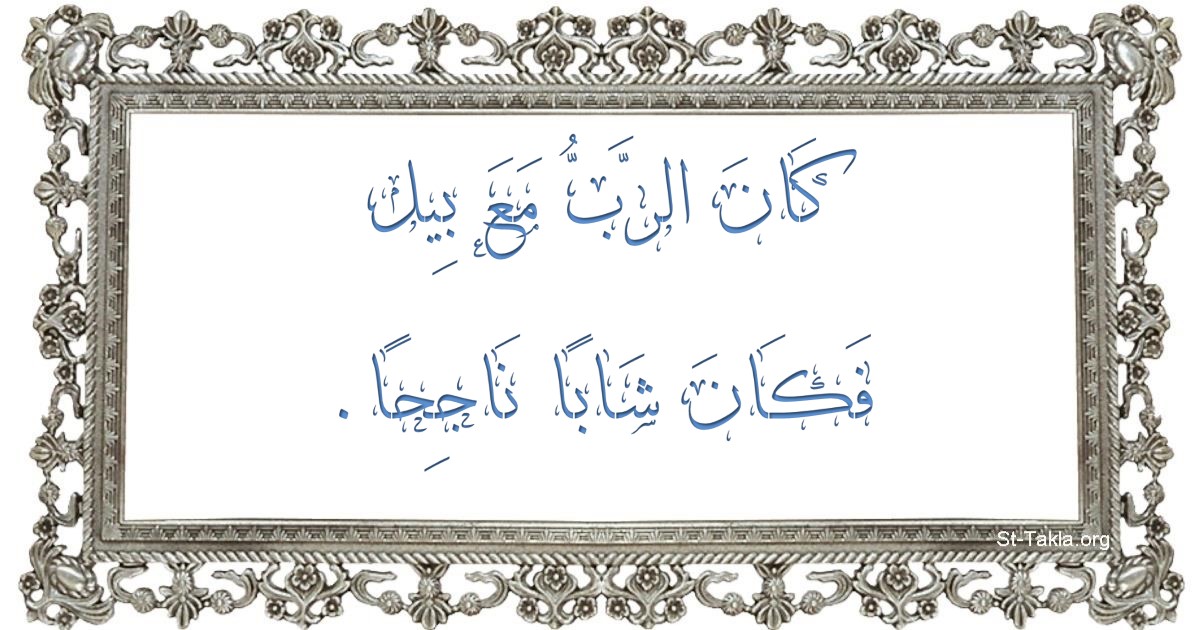 كَانَ الرَّبُّ مَعَ بِيِل
فَكَانَ شَابًا نَاجِحًا .
St-Takla.org